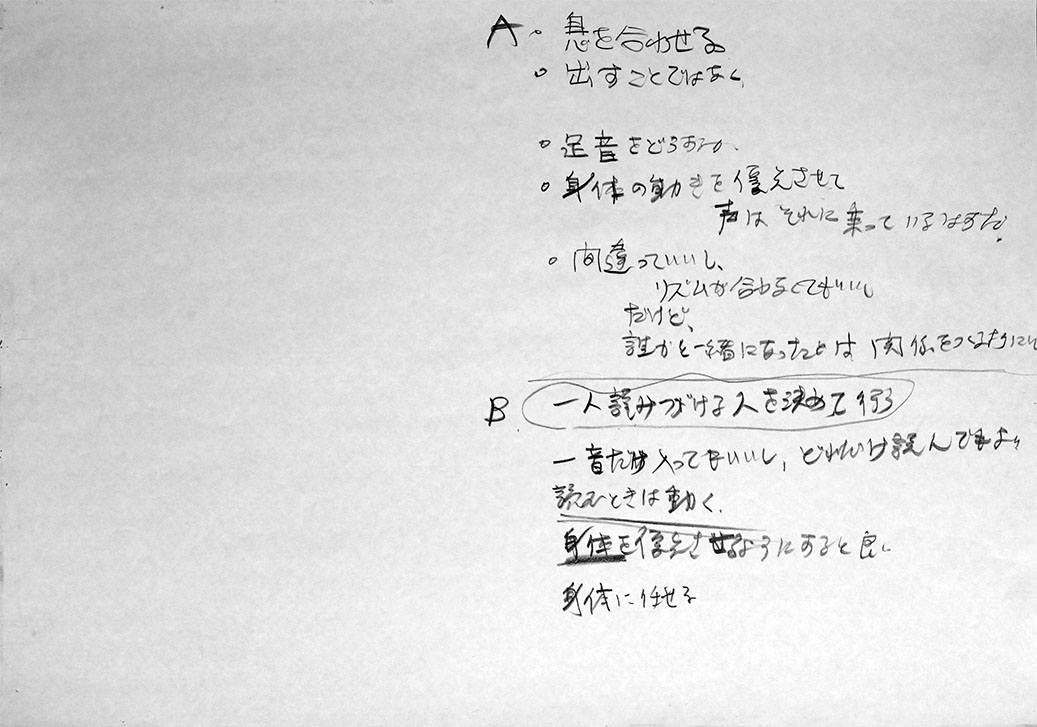 A ・息を合わせる
・出すことではなく、
・足音をどうするか、
・身体の動きを優先させて
声はそれに乗っているはずだ。
・間違っていいし、
リズムが合わなくてもいいし
だけど、
誰かと一緒になったときは 関係をつくるように
B. 一人読みつづける人を決めて行う
一音だけ入ってもいいし、どれだけ読んでもよい
読むときは動く。
身体を優先させるようにすると良い
身体に任せる